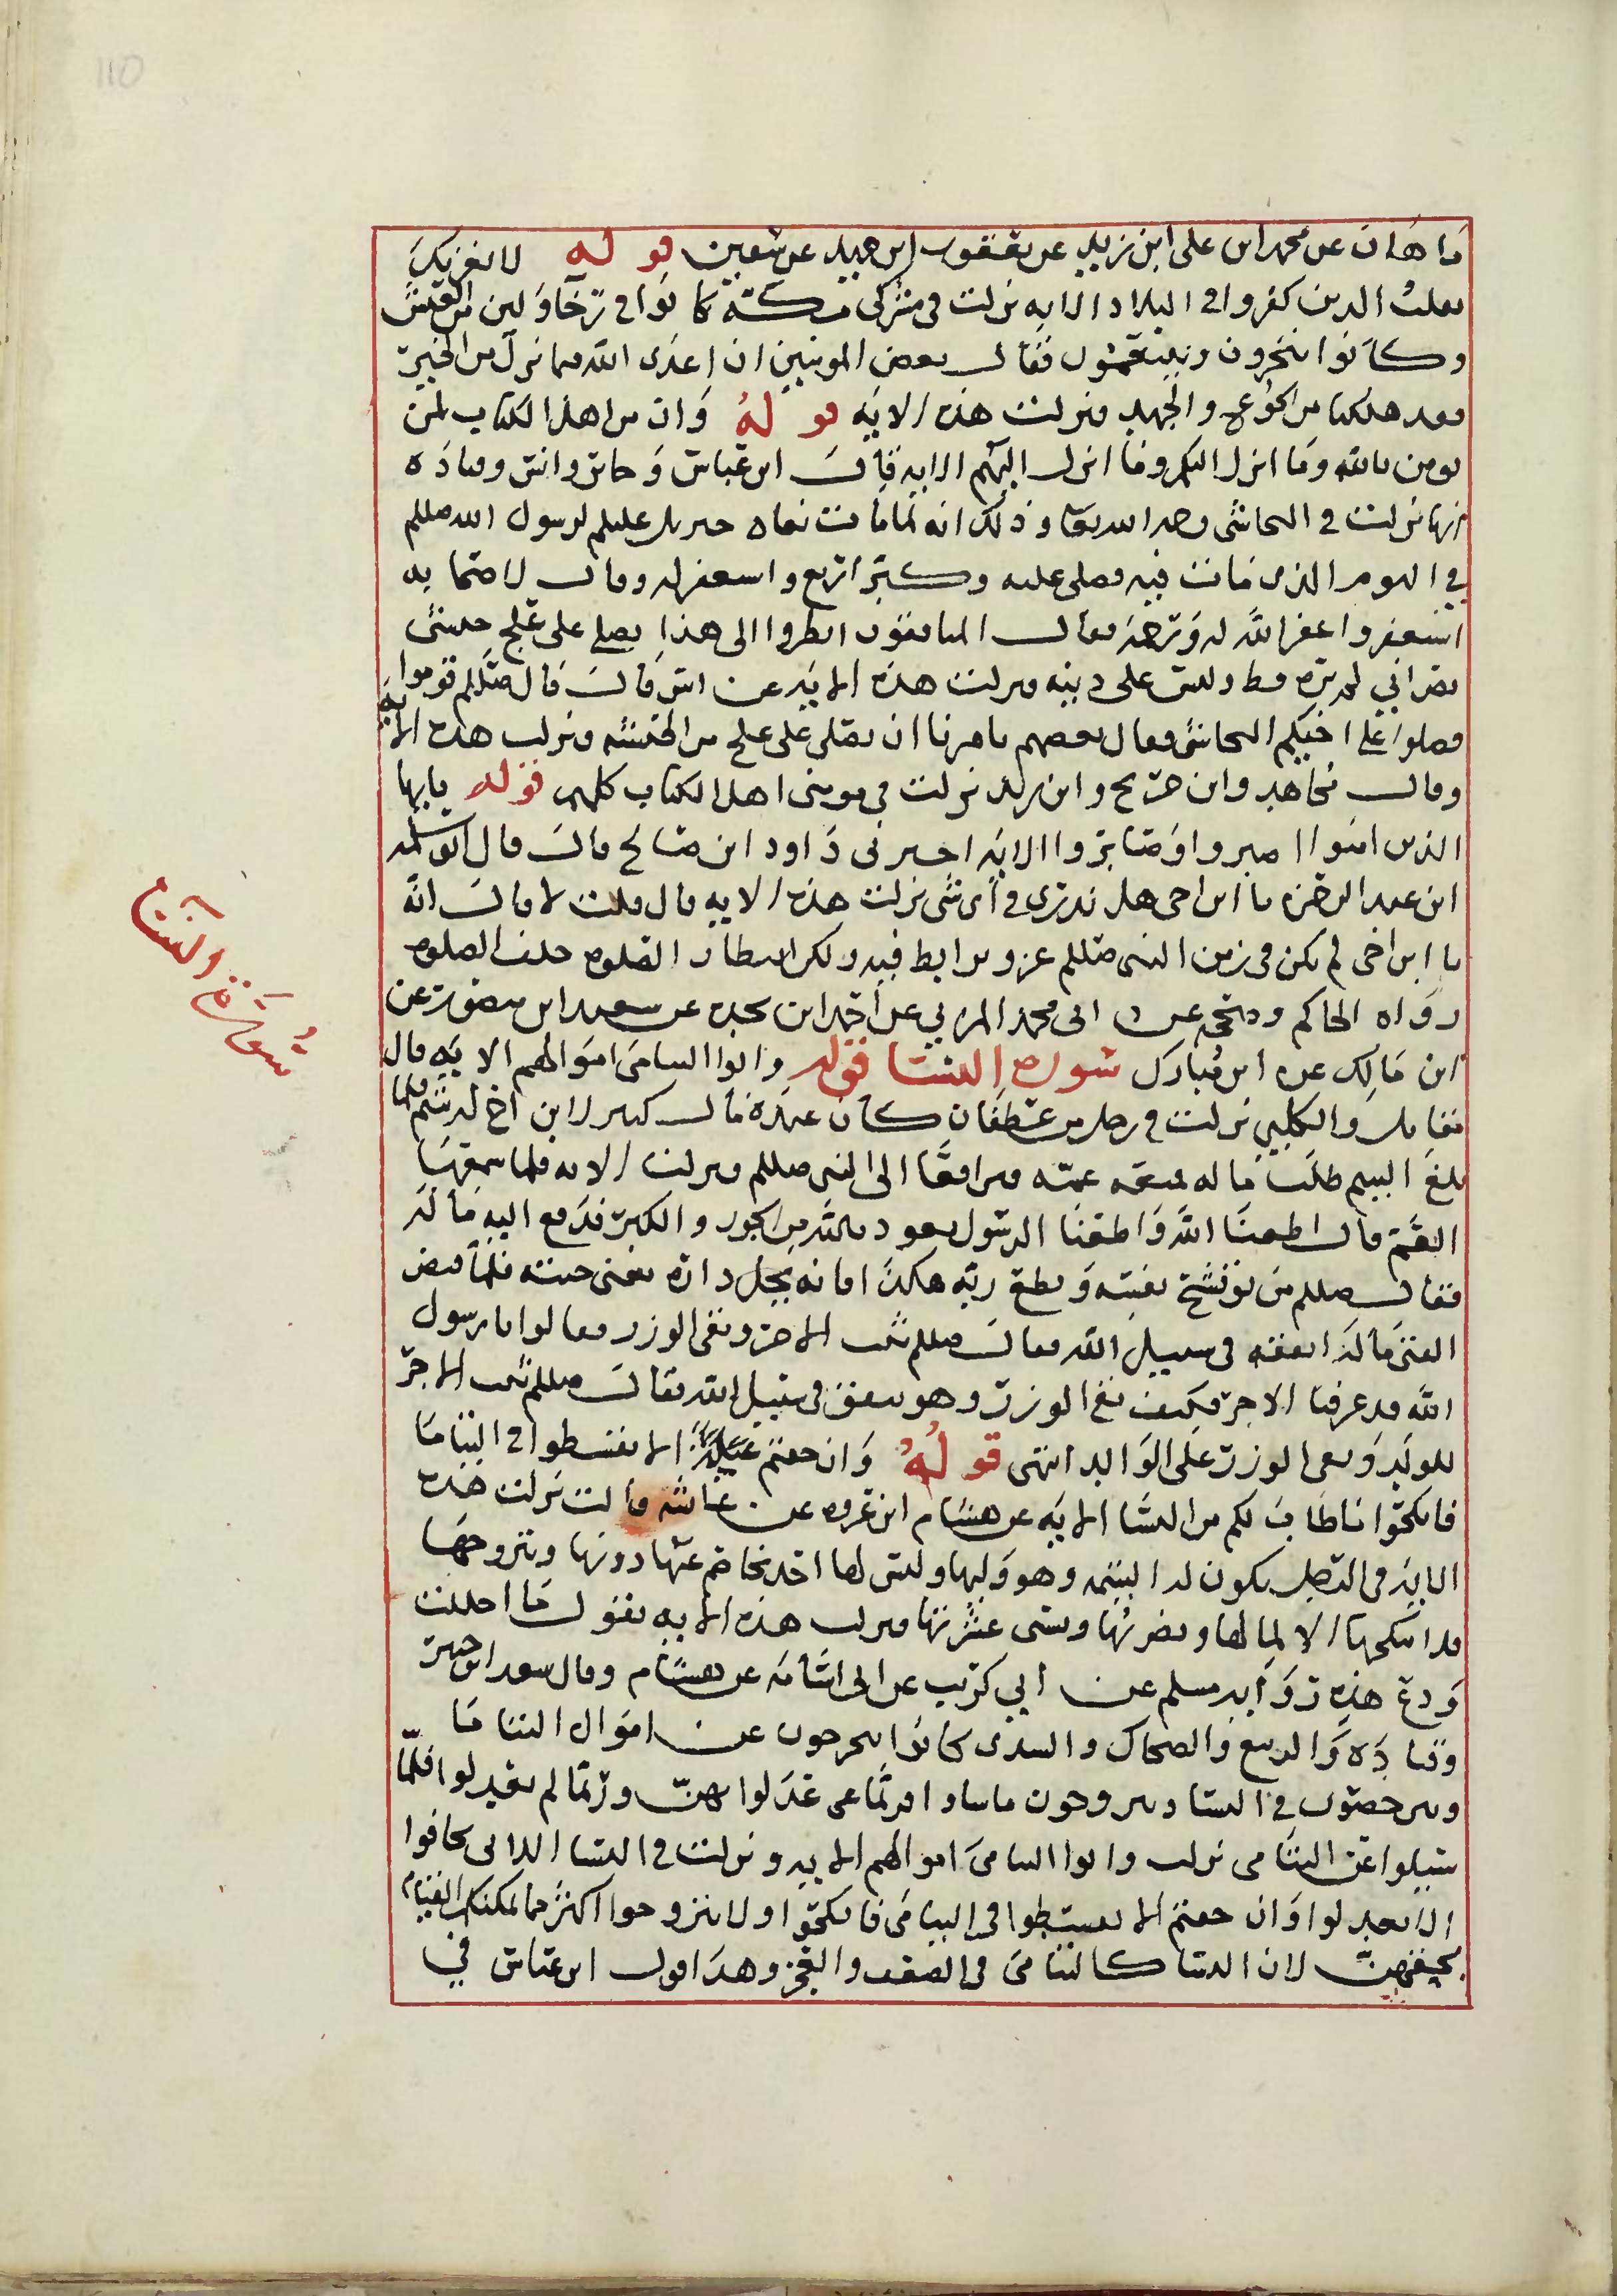 ماهان عن محمد ابن على ابن زيد عن يعقوب ابن حميد عن شعيب قوله لا يغرنك
تقلب الذين كفروا في البلاد الايه نزلت في مشركي مكة كانوا في رخا ولين من العيش
وكانوا يتجرون ويتنعمون فقال بعض المومنين ان اعدى الله فيما نرى من الخير
وقد هلكنا من الجوع والجهد فنزلت هذه الايه قوله وان من اهل الكتاب لمن
يومن بالله وما انزل اليكم وما انزل اليهم الايه قال ابن عباس وجابر وانس وقتاده
انها نزلت في النجاشي رحمه الله تعا وذلك انه لما مات نعاه جبريل عليلم لرسول الله صللم
في اليوم الذي مات فيه فصلى عليه وكبر اربع واستغفر له وقال لاصحابه
استغفروا غفر الله له ورحمه فقال المنافقون انظروا الى هذا يصلي على علج حبشي
نصراني لم يره قط وليس على دينه فنزلت هذه الايه عن انس قال قال صللم قوموا
فصلوا على اخيكم النجاشي فقال بعضهم يامرنا ان نصلي على علج من الحبشه فنزلت هذه الايه
وقال مجاهد وابن جريح وابن زيد نزلت في مومني اهل الكتاب كلهم قوله يايها
الذين امنوا اصبروا وصابروا الايه اخبرني داود ابن صالح قال قال ابو سلمه
ابن عبد الرحمن يا ابن اخي هل تدري في اي شي نزلت هذه الايه قال قلت لا قال انه
يا ابن اخي لم يكن في زمن النبي صللم غزو يرابط فيه ولكن انتظار الصلوه خلف الصلوه
رواه الحاكم وصححه عن ابى محمد المزني عن احمد ابن نجده عن سعيد ابن منصور عن
ابن مالك عن ابن مبارك سوره النسا قوله واتوا اليتامى اموالهم الايه قال
مقاتل والكلبي نزلت في رجل من غطفان كان عنده مال كبير لابن اخ له يتيم فلما
بلغ اليتيم طلب ماله فمنعه عمه فترافعا الى النبي صللم فنزلت الايه فلما سمعها
العم قال اطعنا الله واطعنا الرسول نعوذ بالله من الحوب الكبير فدفع اليه ماله
فقال صللم من يوق شح نفسه ويطع ربه هكذا فانه يحل داره يعنى جنته فلما قبض
الفتى ماله انفقه في سبيل الله فقال صللم ثبت الاجر وبقى الوزر فقالوا يا رسول
الله قد عرفنا الاجر فكيف بقي الوزر وهو ينفق في سبيل الله فقال صللم ثبت الاجر
للولد وبقى الوزر على الوالد انتهى قوله وان خفتم الا تقسطوا في اليتامى
فانكحوا ما طاب لكم من النسا الايه عن هشام ابن عروه عن عائشه قالت نزلت هذه
الايه في الرجل يكون له اليتيمه وهو وليها وليس لها احد يخاصم عنها دونها ويتزوجها
فلا ينكحها الا لمالها ويضر بها ويسى عشرتها فنزلت هذه الايه يقول ما احللت
ودع هذه رواه مسلم عن ابي كريب عن ابى اسامه عن هشام وقال سعيد ابن جبير
وقتاده والربيع والضحاك والسدى كانوا يتحرجون عن اموال اليتامى
ويترخصون في النسا ويتزوجون ما شاوا فربما عدلوا بهن وربما لم يعدلوا فلما
سيلوا عن اليتامى نزلت واتوا اليتامى اموالهم الايه ونزلت في النسا اللاتى تخافوا
الا تعدلوا وان خفتم الا تقسطوا في اليتامى فانكحوا ولا تتزوجوا اكثر مما يمكنكم القيام
بحقهن لان النسا كاليتامى في الضعف والعجز وهذا قول ابن عباس في
سورة النساء
110